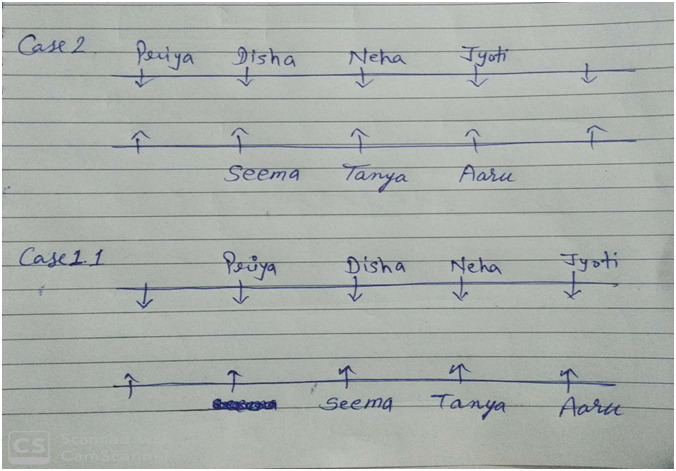 Case 2. Priya Disha Neha Jyoti
Seema Tanya Aaru
Case 1.1 Priya Disha Neha Jyoti
Seema Tanya Aaru
CS Scanned with
CamScanner